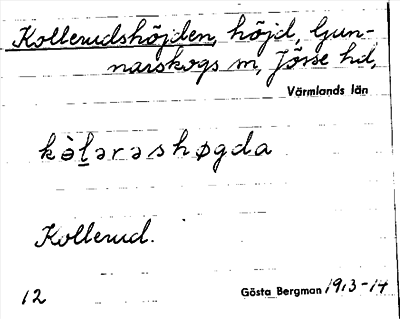 Kollerudshöjden, höjd, Gun-
narskogs sn, Jösse hd,
Värmlands län
kə̀l̠ərəshøgda
Kollerud.
12
Gösta Bergman 1913-14